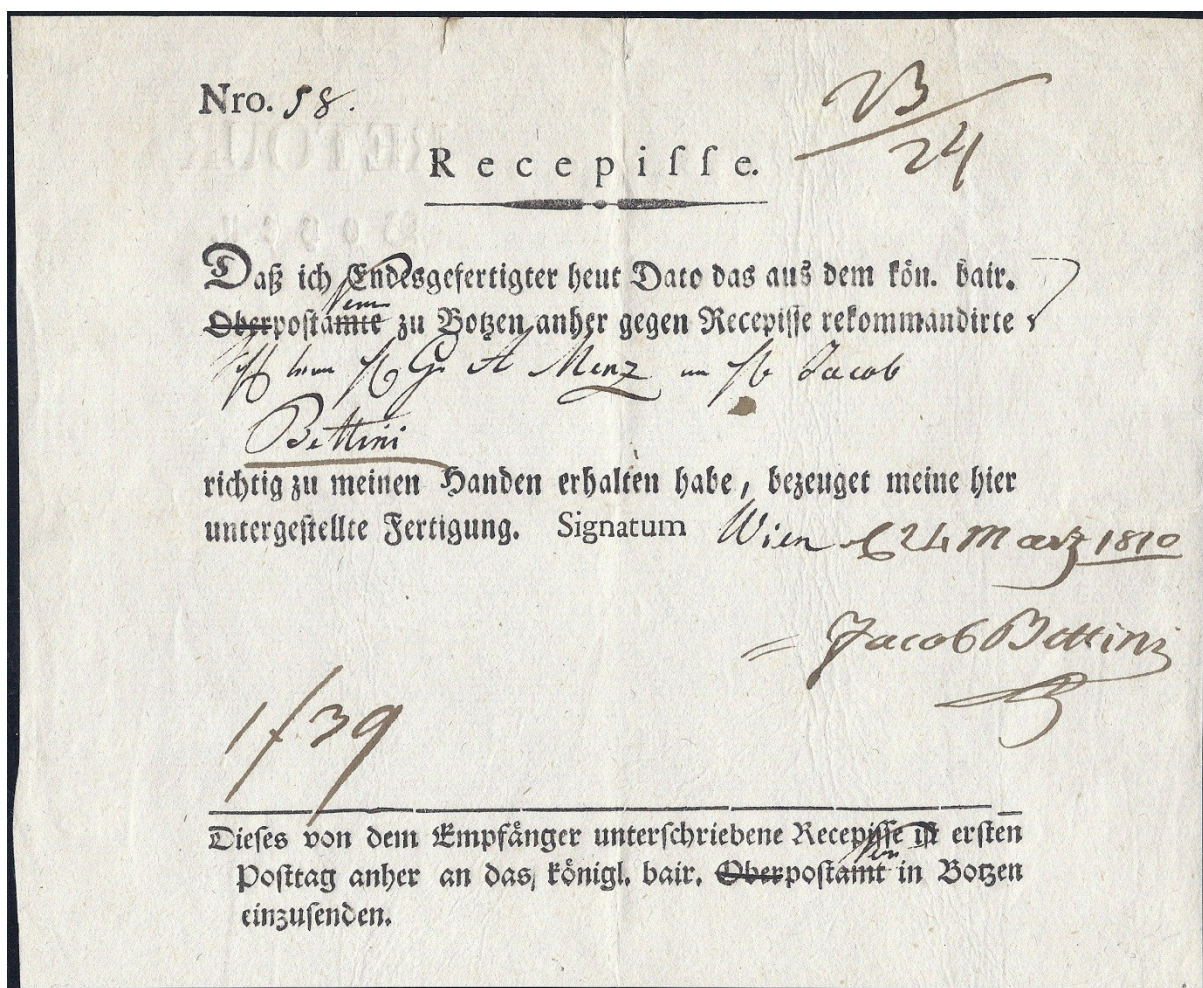 Nro. 58.
23/24
Recepiſſe.
Daß ich Endesgefertigter heut Dato das aus dem kön. bair.
Oberpostamte zu Botzen anher gegen Recepisse rekommandirte
Menz an Jacob
Bettini
richtig zu meinen Handen erhalten habe, bezeuget meine hier
untergestellte Fertigung. Signatum Wien 24 Marz 1810
Jacob Bettini
1/39
Dieses von dem Empfänger unterschriebene Recepisse ist ersten
Posttag anher an das königl. bair. Oberpostamt in Botzen
einzusenden.